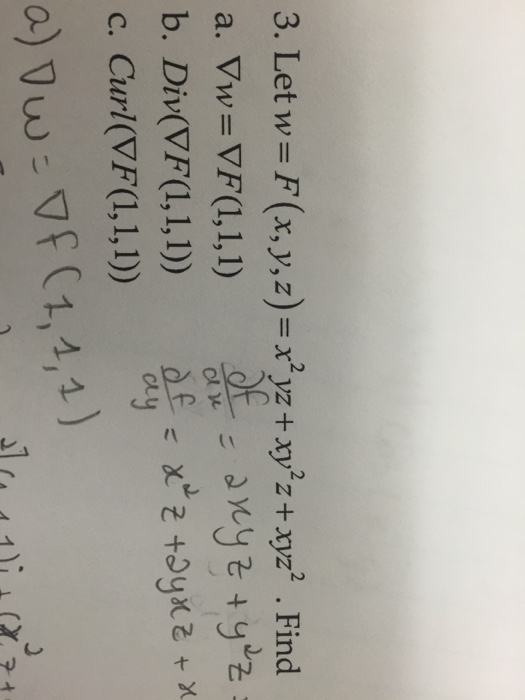 3. Let w = F(x, y, z) = x²yz + xy²z + xyz². Find
a. ∇w = ∇F(1,1,1)
b. Div(∇F(1,1,1))
c. Curl(∇F(1,1,1))
∂f/∂x = 2xyz + y²z
∂f/∂y = x²z + 2yxz + x
a) ∇w = ∇f(1,1,1)